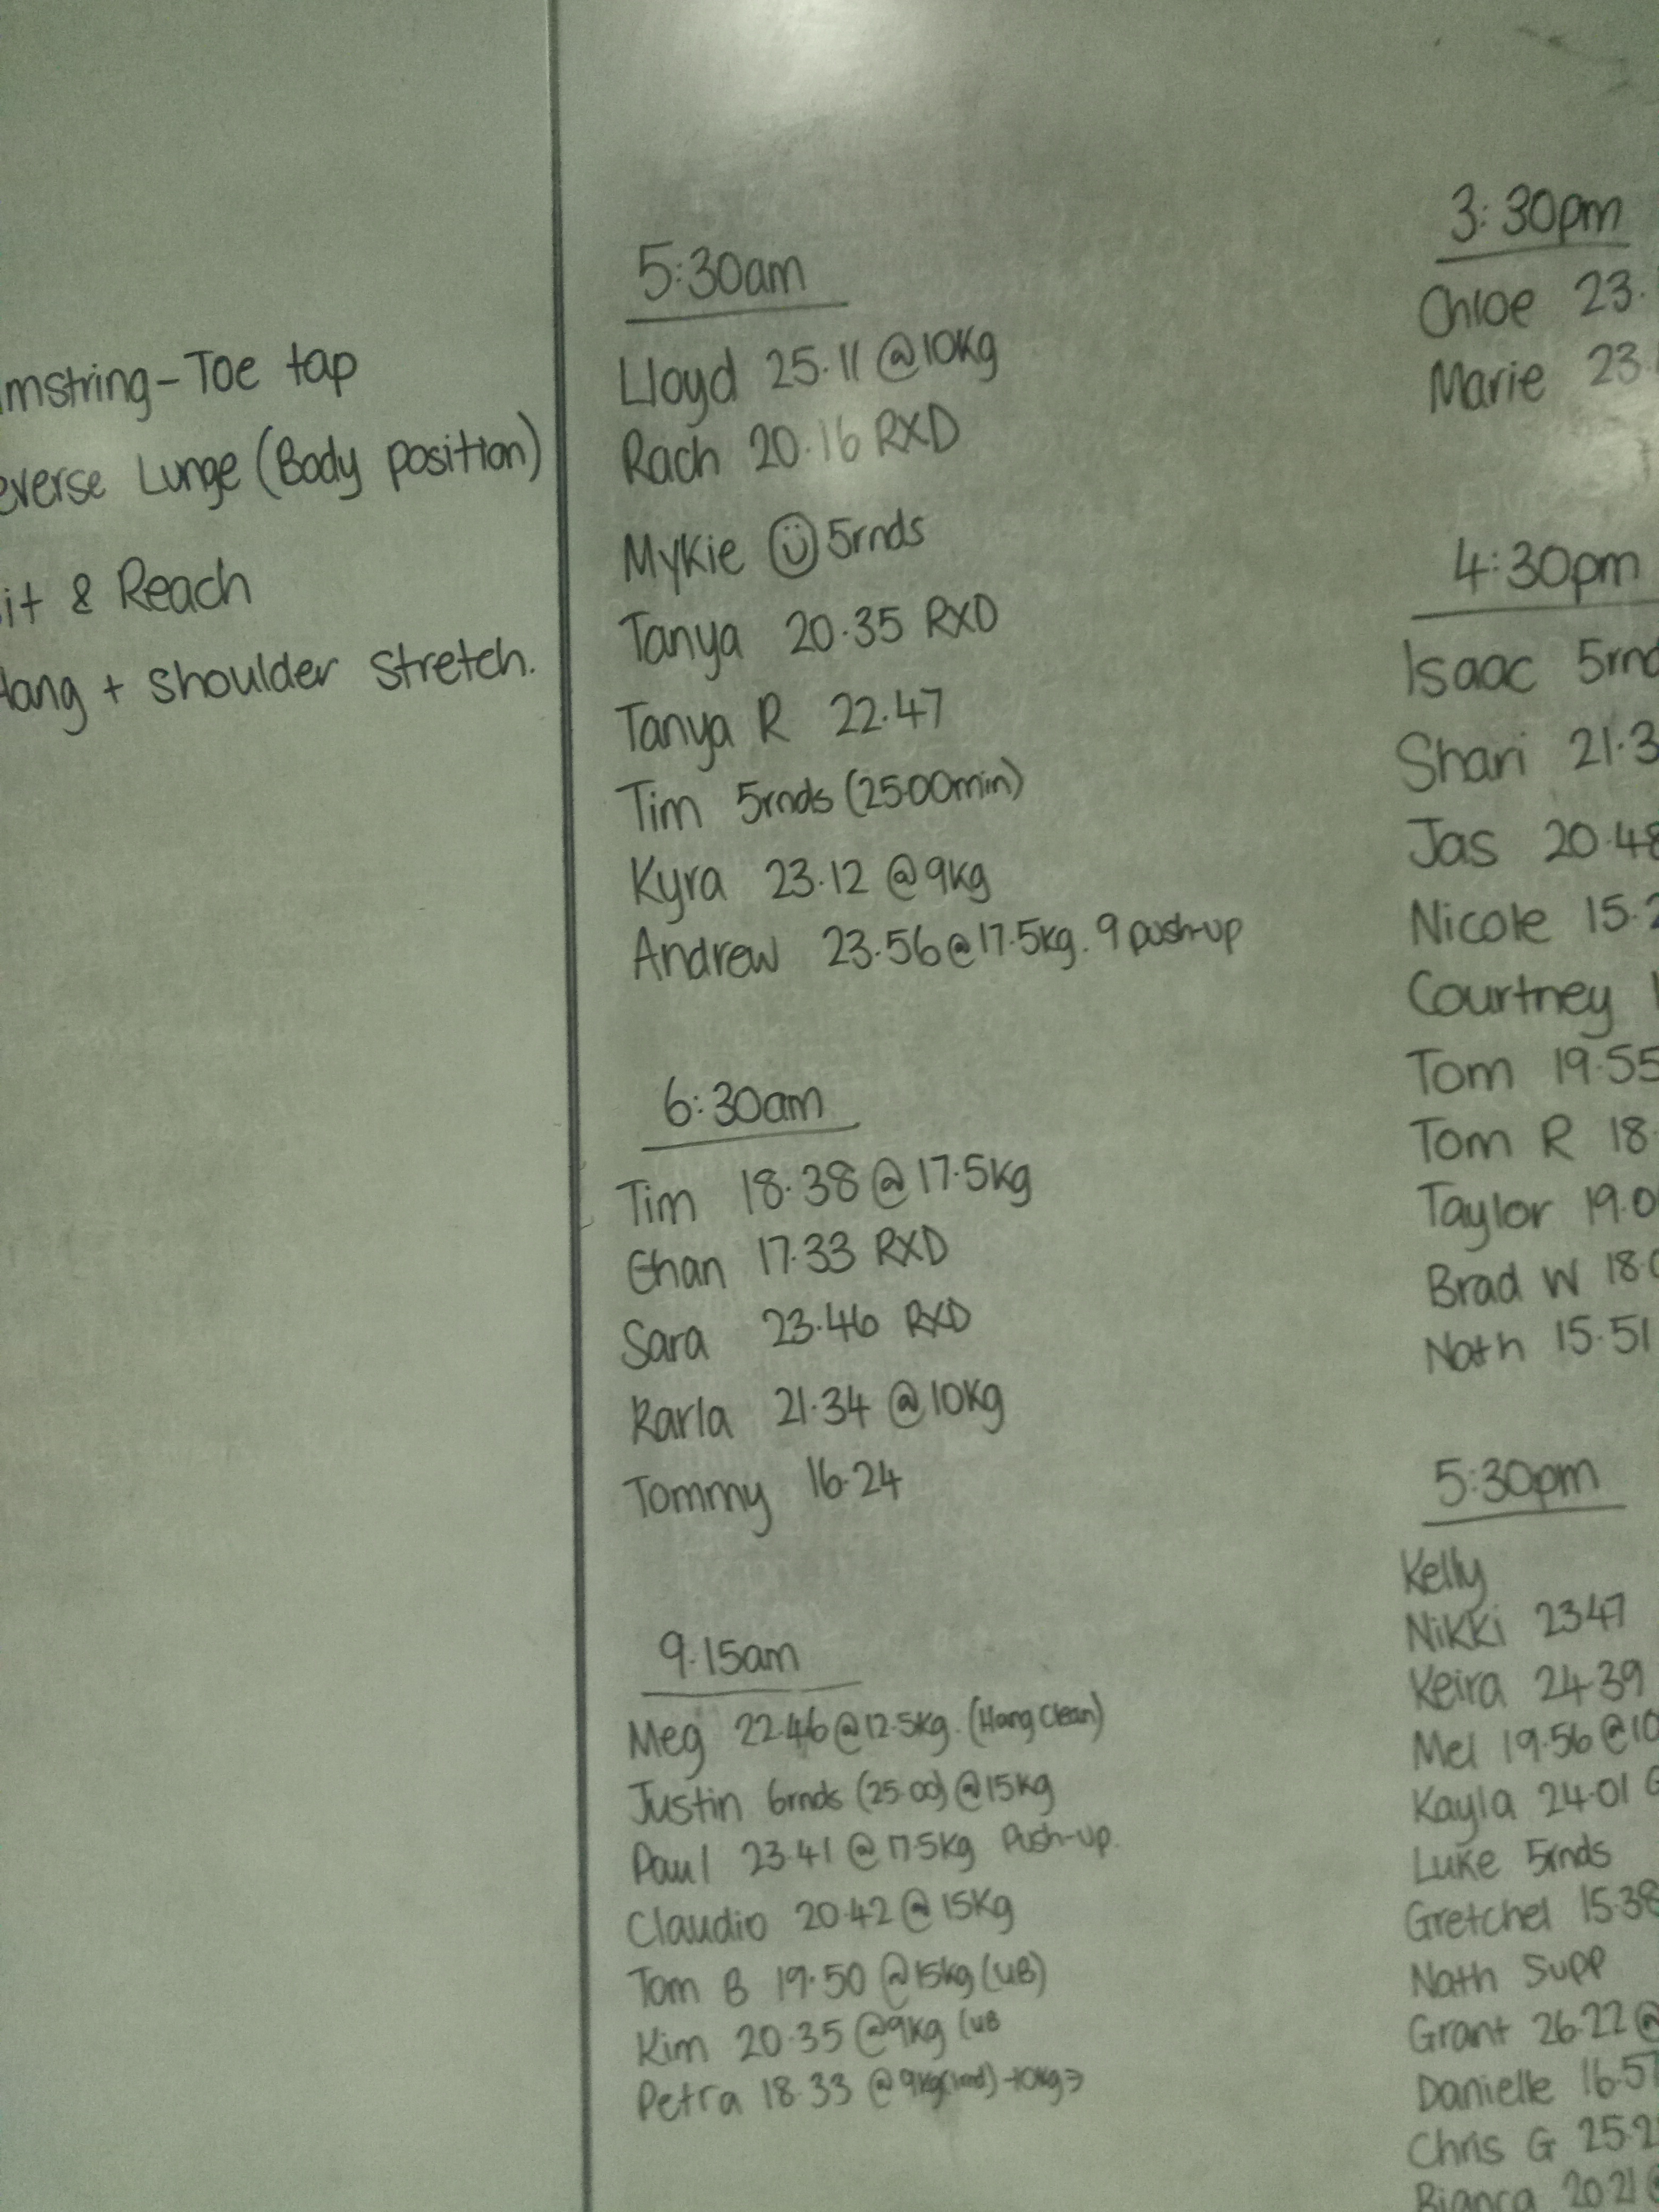 Toe tap
Lunge (Body position)
& Reach
+ shoulder stretch.
5:30am
Lloyd 25.11 @10kg
Rach 20.16 RXD
Mykie 5rnds
Tanya 20.35 RXD
Tanya R 22.47
Tim 5rnds (25.00min)
Kyra 23.12 @9kg
Andrew 23.56@17.5kg. 9 push-up
6:30am
Tim 18.38 @17.5kg
17.33 RXD
Sara 23.46 RXD
Karla 21.34 @10kg
Tommy 16.24
9.15am
Meg 22.46@12.5kg. (Hang Clean)
Justin 6rnds (25.00) @15kg
Paul 23.41 @17.5kg Push-up.
Claudio 20.42 @ 15kg
Tom B 19.50 @15kg (UB)
Kim 20.35 @9kg (UB
Petra 18.33 @9kg
3:30pm
Chloe 23.
Marie 23.
4:30pm
Isaac 5rnd
Shari 21.3
Jas 20.48
Nicole 15.2
Courtney 1
Tom 19.55
Tom R 18.
Taylor 19.0
Brad W 18.0
Nath 15.51
5:30pm
Kelly
Nikki 23.47
Keira 24.39
Mel 19.56 @10
Kayla 24.01
Luke 5rnds
Gretchel 15.38
Nath Supp
Grant 26.22 @
Danielle 16.57
Chris G 25.2
Bianca 20.21